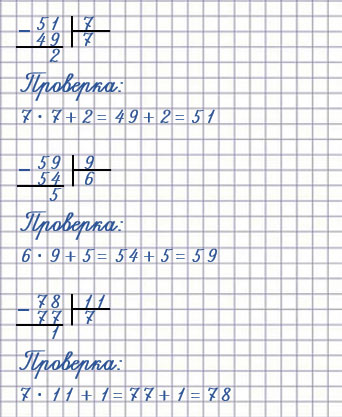 - 51 | 7
49 | 7
2
Проверка:
7 · 7 + 2 = 49 + 2 = 51
- 59 | 9
54 | 6
5
Проверка:
6 · 9 + 5 = 54 + 5 = 59
- 78 | 11
77 | 7
1
Проверка:
7 · 11 + 1 = 77 + 1 = 78